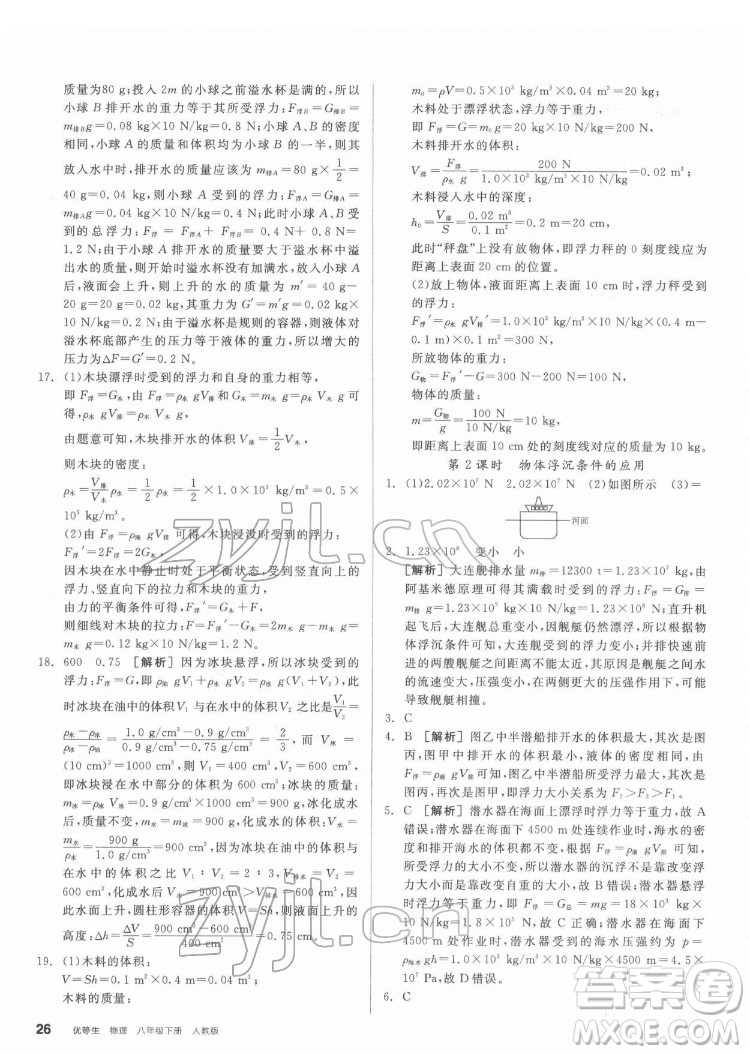 质量为80 g;投入 2m 的小球之前溢水杯是满的,所以
小球 B 排开水的重力等于它的所受浮力:F浮B=G排B=
m排Bg=0.08 kg×10 N/kg=0.8 N;小球 A、B 的密度
相同,小球 A 的质量是小球 B 的一半,所以小球 A
放入水中时,排开水的质量应该为 m排A=80 g×1/2=
40 g;小球 A 受到的浮力:F浮A=G排A=m排Ag=
0.04 kg×10 N/kg=0.4 N;此时小球 A、小球 B 受到
的总浮力:F浮=F浮A+F浮B=0.4 N+0.8 N=
1.2 N;由于小球 A 排开水的质量要大于溢水杯中溢
出水的质量,说明溢水杯没有加满水,放入物体之
后,液面会上升,则上升的水的质量 m′=40 g-
20 g=20 g=0.02 kg,其重力为 G′=m′g=0.02 kg×
10 N/kg=0.2 N;由于溢水杯是规则的容器,则液体对
溢水杯底部产生的压力等于液体的重力,所以增大的
压力为 ΔF=G′=0.2 N。
17. (1)木块漂浮时受到的浮力和自身的重力相等,
即 F浮=G木,由 F浮=ρ水 gV排 和 G=ρ木 gV木 可
得,ρ木=V排/V木 ρ水,
由题意可知,木块排开水的体积 V排=1/2 V木,
则木块的密度:
ρ木=V排/V木 ρ水=1/2 ρ水=1/2×1.0×10³ kg/m³=0.5×
10³ kg/m³。
(2)由 F浮=ρ水 gV排 可得,木块浸没时受到的浮力:
F浮′=2F浮=2G木=2×1.2 N=2.4 N,
因木块在水中静止时处于平衡状态,受到竖直向上的
浮力、竖直向下的拉力和重力的作用,
由力的平衡条件可得:F浮′=G木+F,
则细线对木块的拉力:
F=F浮′-G木=2.4 N-1.2 N=1.2 N。
18. 600 0.75 [解析] 因为冰块悬浮,所以冰块受到的
浮力:F浮=G,即 ρ油 gV1+ρ水 gV2=ρ冰 gV冰,此
时冰块在油中的体积与在水中的体积之比是V1/V2=
(ρ水-ρ冰)/(ρ冰-ρ油)=(1.0 g/cm³-0.9 g/cm³)/(0.9 g/cm³-0.75 g/cm³)=2/3;而 V冰=
(10 cm)³=1000 cm³,V1+V2=V冰=1000 cm³,
即冰块浸在水中部分的体积为 600 cm³;冰块的质量:
m冰=ρ冰 V冰=0.9 g/cm³×1000 cm³=900 g,冰块化
成水的体积:V=m冰/ρ水=900 g/1.0 g/cm³=900 cm³;在油与
在水中的体积之比 V1∶V2=2∶3,则浸在水中的体
积为 600 cm³,化成水后 V=900 cm³>600 cm³,故水
面上升,圆柱形容器的体积 V=Sh,则水面上升的
高度:Δh=ΔV/S=(900 cm³-600 cm³)/400 cm²=0.75 cm。
19. (1)木料的体积:
V=Sh=0.1 m²×0.4 m=0.04 m³,
木料的质量:
m0=ρV=0.5×10³ kg/m³×0.04 m³=20 kg,
木料处于漂浮状态,浮力等于重力,
即 F浮=G=m0 g=20 kg×10 N/kg=200 N,
木料排开水的体积:
V排=F浮/ρ水 g=200 N/(1.0×10³ kg/m³×10 N/kg)=0.02 m³,
木料浸入水中的深度:
h0=V排/S=0.02 m³/0.1 m²=0.2 m=20 cm,
此时“秤盘”上没有放物体,即浮力秤的 0 刻度线应为
距离上表面 20 cm 的位置。
(2)放上物体,液面距离上表面 10 cm 处时,浮力秤受
到的浮力:
F浮′=ρ水 gV排′=1.0×10³ kg/m³×10 N/kg×(0.4 m-
0.1 m)×0.1 m²=300 N,
所放物体的重力:
G物=F浮′-G=300 N-200 N=100 N,
物体的质量:
m=G物/g=100 N/10 N/kg=10 kg,
即距离上表面 10 cm 处的刻度线对应的质量为 10 kg。
第 2 课时 物体浮沉条件的应用
1. (1)2.02×10⁷ N 2.02×10⁷ N (2)如图所示 (3)=
河面
2. 1.23×10⁸ 变小 小
[解析] 大连舰排水量 m排=12300 t=1.23×10⁷ kg,由
阿基米德原理可得其满载时受到的浮力:F浮=G排=
m排 g=1.23×10⁷ kg×10 N/kg=1.23×10⁸ N;直升机
起飞后,大连舰总重变小,因舰艇漂浮,由物体的
浮沉条件可知,舰艇受到的浮力变小;并排快速前
进的两艘舰艇,由于舰艇之间的水
的流速变大,压强变小,在舰艇内外压强差的作用下,可能
导致舰艇相撞。
3. C
4. B [解析] 图乙中半潜船排开水的体积最大,其次是图
丙,图甲中排开水的体积最小,液体的密度不变,
根据 F浮=ρ液 gV排 可知,图乙中所受的浮力最大,其次
是图丙,图甲中所受的浮力最小,即 F2>F3>F1。
5. C [解析] 潜水器在海面上漂浮时浮力等于重力,故 A
错误;潜水器在海面下 4500 m 处连续作业时,由于海水
的密度和排开海水的体积不变,由 F浮=ρ海水 gV排 可知,
浮力不变,所以潜水器的沉浮不是靠改变浮力大小
实现的,而是靠改变自重大小实现的,故 B 错误;潜水器悬浮
时受到的浮力:F浮=G总=mg=18×10³ kg×
10 N/kg=1.8×10⁵ N,故 C 正确;潜水器在海面下
4500 m 处作业时,潜水器受到的海水压强约为 p=
10⁷ Pa,故 D 错误。
6. C
26 优等生 物理 八年级下册 人教版
zyjl.cn
zyjl.cn